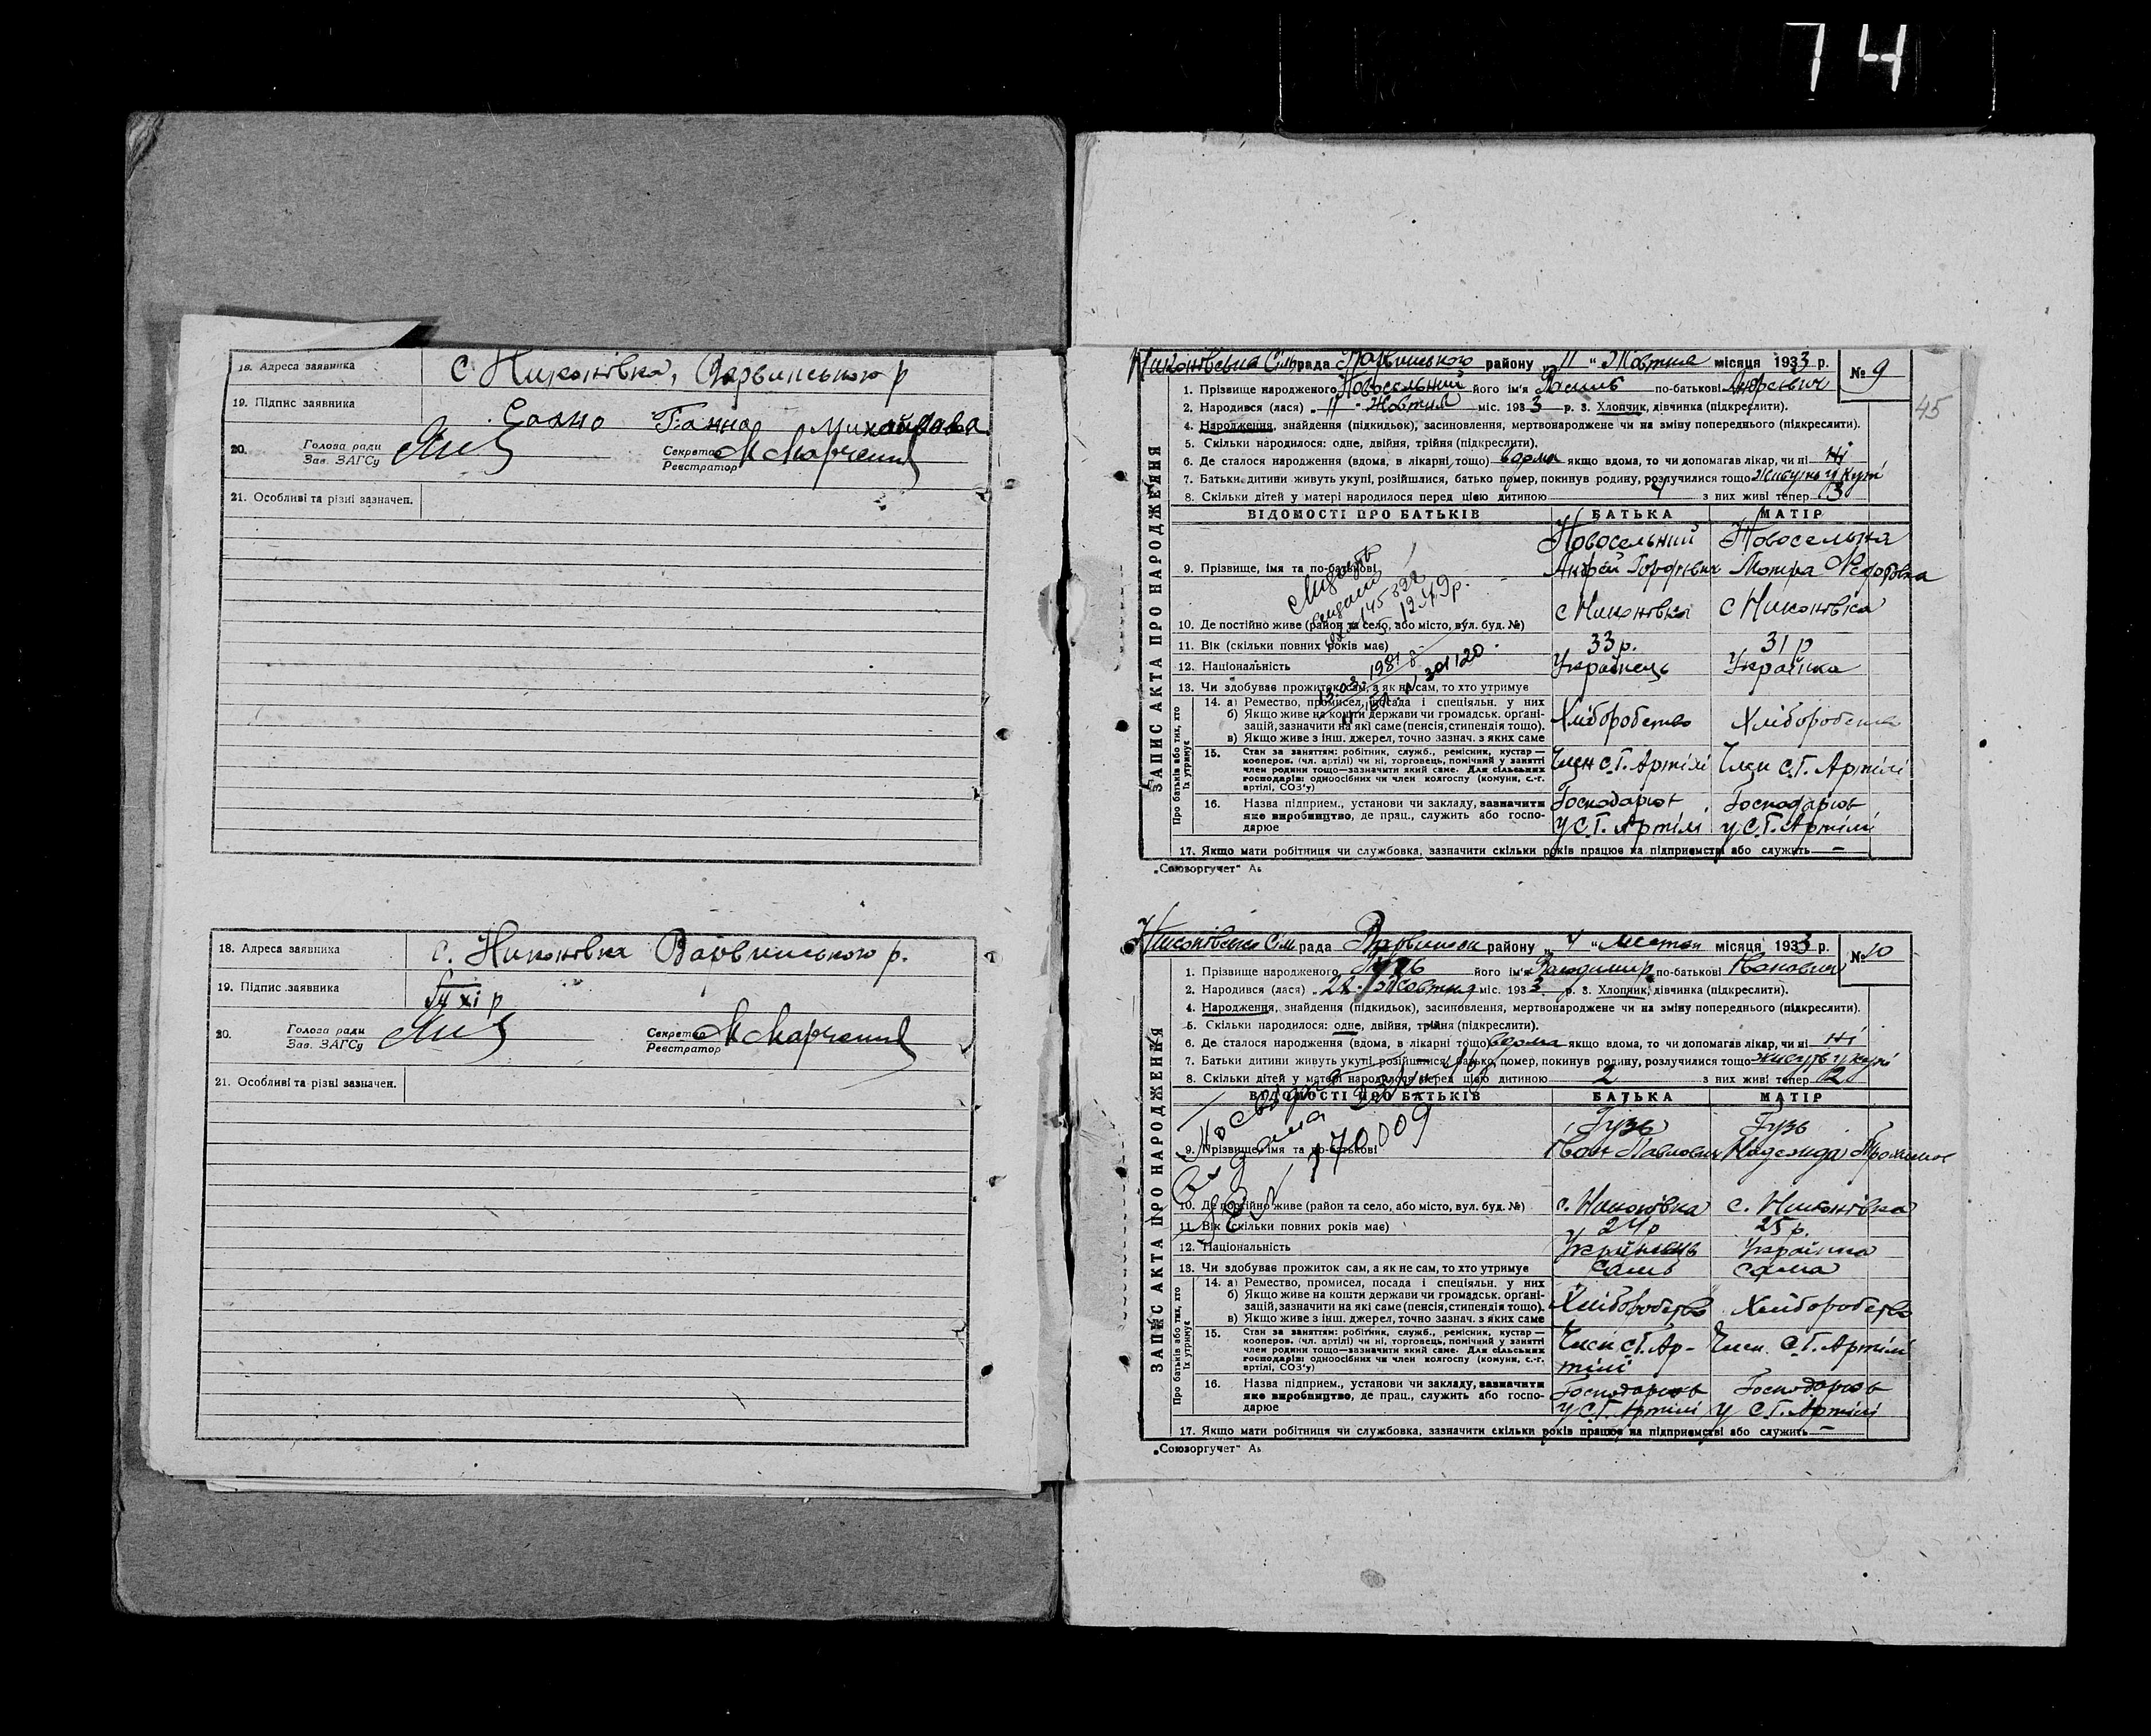 74
18. Адреса заявника с. Никонівка, Варвинського р
19. Підпис заявника Ганна
20. Голова ради
Зав. ЗАГСу
Секретар М Марченко
Реєстратор
21. Особливі та різні зазначен.
18. Адреса заявника с. Никонівка Варвинського р.
19. Підпис заявника
20. Голова ради
Зав. ЗАГСу
Секретар М Марченко
Реєстратор
21. Особливі та різні зазначен.
45
ЗАПИС АКТА ПРО НАРОДЖЕННЯ
Никонівська Сільрада Варвинського району „11 “ Жовтня місяця 1933 р. № 9
1. Прізвище народженого Новосельний його ім'я Василь по-батькові
2. Народився (лася) „ 11 “ Жовтня міс. 1933 р. 3. Хлопчик, дівчинка (підкреслити).
4. Народження, знайдення (підкидьок), засиновлення, мертвонароджене чи на зміну попереднього (підкреслити).
5. Скільки народилося: одне, двійня, трійня (підкреслити).
6. Де сталося народження (вдома, в лікарні, тощо) вдома якщо вдома, то чи допомагав лікар, чи ні Ні
7. Батьки дитини живуть укупі, розійшлися, батько помер, покинув родину, розлучилися тощо Живуть у купі
8. Скільки дітей у матері народилося перед цією дитиною 4 з них живі тепер 3
ВІДОМОСТІ ПРО БАТЬКІВ БАТЬКА МАТІР
Новосельний Новосельна
9. Прізвище, імя та по-батькові Андрій Мотря
145892
5 12.49р.
10. Де постійно живе (район та село, або місто, вул. буд. №) с Никонівка с Никонівка
11. Вік (скільки повних років має) 33 р. 31 р
12. Національність Українець Українка
13.03.1981
№ 301120
13. Чи здобуває прожиток сам, а як не сам, то хто утримує
Про батьків або тих, хто їх утримує
14. а) Ремество, промисел, посада і спеціяльн. у них
б) Якщо живе на кошти держави чи громадськ. орґані-
зацій, зазначити на які саме (пенсія, стипендія тощо).
в) Якщо живе з інш. джерел, точно зазнач. з яких саме
Хліборобство Хліборобство
15. Стан за заняттям: робітник, служб., ремісник, кустар —
кооперов. (чл. артілі) чи ні, торговець, помічний у занятті
член родини тощо—зазначити який саме. Для сільських
господарів: одноосібних чи член колгоспу (комуни, с.-г.
артілі, СОЗ'у)
Член С.Г. Артілі Член С.Г. Артілі
16. Назва підприєм., установи чи закладу, зазначити
яке виробництво, де прац., служить або госпо-
дарює
Господарює Господарює
у С.Г. Артілі у С.Г. Артілі
17. Якщо мати робітниця чи службовка, зазначити скільки років працює на підприємстві або служить —
„Союзоргучет“
ЗАПИС АКТА ПРО НАРОДЖЕННЯ
Никонівська Сільрада району „4 “ місяця 1933 р. № 10
1. Прізвище народженого Гузь його ім'я Володимир по-батькові Іванович
2. Народився (лася) „ 28 “ Жовтня міс. 1933 р. 3. Хлопчик, дівчинка (підкреслити).
4. Народження, знайдення (підкидьок), засиновлення, мертвонароджене чи на зміну попереднього (підкреслити).
5. Скільки народилося: одне, двійня, трійня (підкреслити).
6. Де сталося народження (вдома, в лікарні, тощо) вдома якщо вдома, то чи допомагав лікар, чи ні Ні
7. Батьки дитини живуть укупі, розійшлися, батько помер, покинув родину, розлучилися тощо живуть у купі
8. Скільки дітей у матері народилося перед цією дитиною 2 з них живі тепер 2
ВІДОМОСТІ ПРО БАТЬКІВ БАТЬКА МАТІР
170.009
Гузь Гузь
9. Прізвище, імя та по-батькові Іван Павлович Надежда
10. Де постійно живе (район та село, або місто, вул. буд. №) с. Никонівка с. Никонівка
11. Вік (скільки повних років має) 24 р 25 р.
12. Національність Українець Українка
13. Чи здобуває прожиток сам, а як не сам, то хто утримує самь сама
Про батьків або тих, хто їх утримує
14. а) Ремество, промисел, посада і спеціяльн. у них
б) Якщо живе на кошти держави чи громадськ. орґані-
зацій, зазначити на які саме (пенсія, стипендія тощо).
в) Якщо живе з інш. джерел, точно зазнач. з яких саме
Хліборобство Хліборобство
15. Стан за заняттям: робітник, служб., ремісник, кустар —
кооперов. (чл. артілі) чи ні, торговець, помічний у занятті
член родини тощо—зазначити який саме. Для сільських
господарів: одноосібних чи член колгоспу (комуни, с.-г.
артілі, СОЗ'у)
Член С.Г. Ар- Член С.Г. Артілі
тілі
16. Назва підприєм., установи чи закладу, зазначити
яке виробництво, де прац., служить або госпо-
дарює
Господарює Господарює
у С.Г. Артілі у С.Г. Артілі
17. Якщо мати робітниця чи службовка, зазначити скільки років працює на підприємстві або служить —
„Союзоргучет“